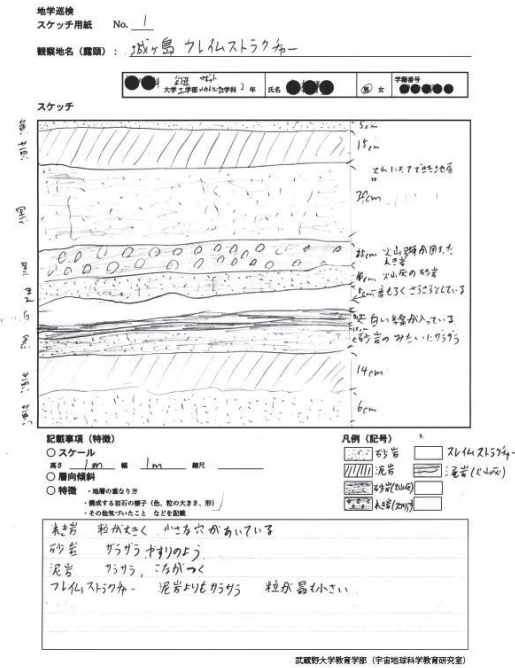 地学巡検
スケッチ用紙 No. 1
観察地名（露頭）： 城ヶ島 フレイムストラクチャー
大学 工学部 学科 2 年 氏名 男 女 学籍番号
スケッチ
5cm
15cm
25cm 火山礫が固まった
れき岩
火山灰の砂岩
5cm もろくさらさらとしている
白い線が入っている
砂岩のみたいにザラザラ
14cm
6cm
記載事項（特徴）
○ スケール
高さ 1m 幅 1m 縮尺
○ 層向傾斜
○ 特徴 ・地層の重なり方
・構成する岩石の様子（色、粒の大きさ、形）
・その他気づいたこと などを記載
凡例（記号）
砂岩 フレイムストラクチャー
泥岩 泥岩(火山灰)
砂岩(火山灰)
れき岩
れき岩 粒が大きく 小さな穴があいている
砂岩 ザラザラ やすりのよう
泥岩 サラサラ, こながつく
フレイムストラクチャー 泥岩よりもサラサラ 粒が最も小さい
武蔵野大学教育学部（宇宙地球科学教育研究室）